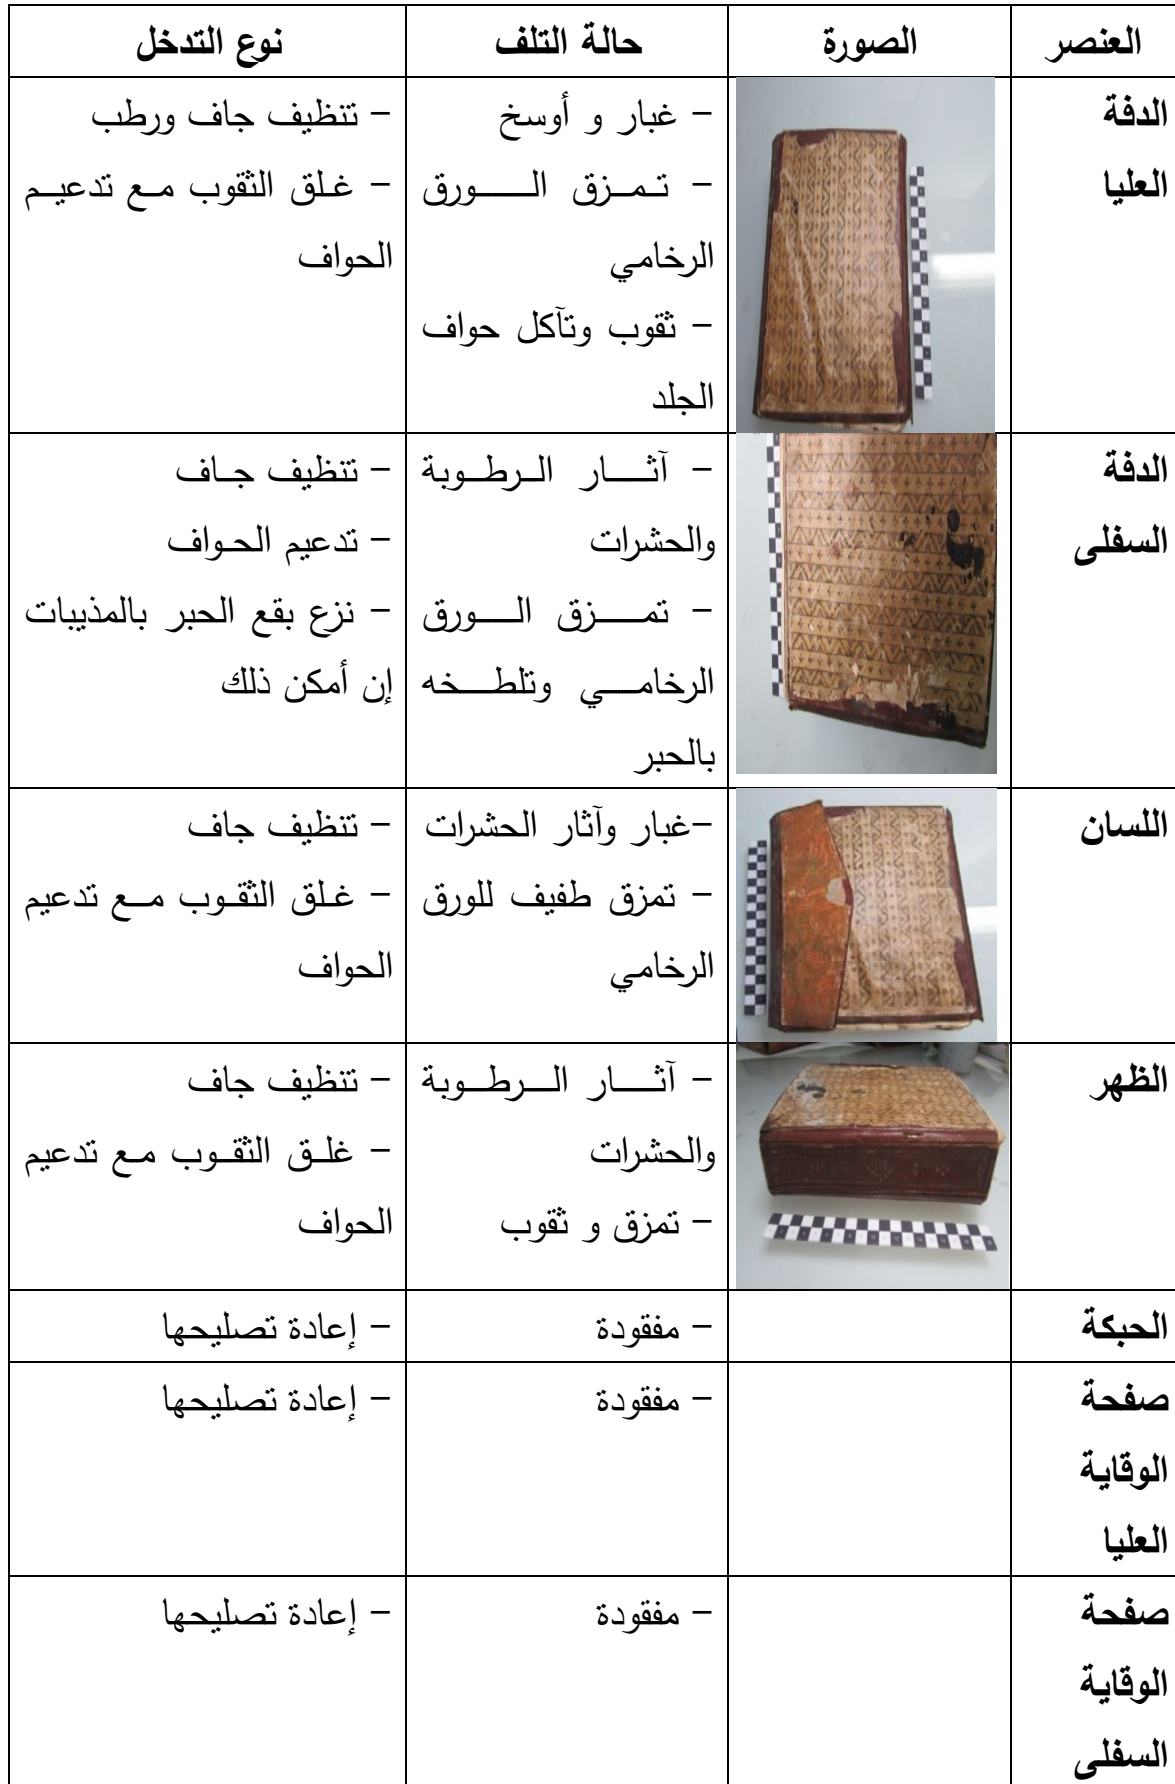 العنصر الصورة حالة التلف نوع التدخل
الدفة
العليا
- غبار و أوسخ
- تمزق الورق
الرخامي
- ثقوب وتآكل حواف
الجلد
- تنظيف جاف ورطب
- غلق الثقوب مع تدعيم
الحواف
الدفة
السفلى
- آثار الرطوبة
والحشرات
- تمزق الورق
الرخامي وتلطخه
بالحبر
- تنظيف جاف
- تدعيم الحواف
- نزع بقع الحبر بالمذيبات
إن أمكن ذلك
اللسان
-غبار وآثار الحشرات
- تمزق طفيف للورق
الرخامي
- تنظيف جاف
- غلق الثقوب مع تدعيم
الحواف
الظهر
- آثار الرطوبة
والحشرات
- تمزق و ثقوب
- تنظيف جاف
- غلق الثقوب مع تدعيم
الحواف
الحبكة
- مفقودة
- إعادة تصليحها
صفحة
الوقاية
العليا
- مفقودة
- إعادة تصليحها
صفحة
الوقاية
السفلى
- مفقودة
- إعادة تصليحها